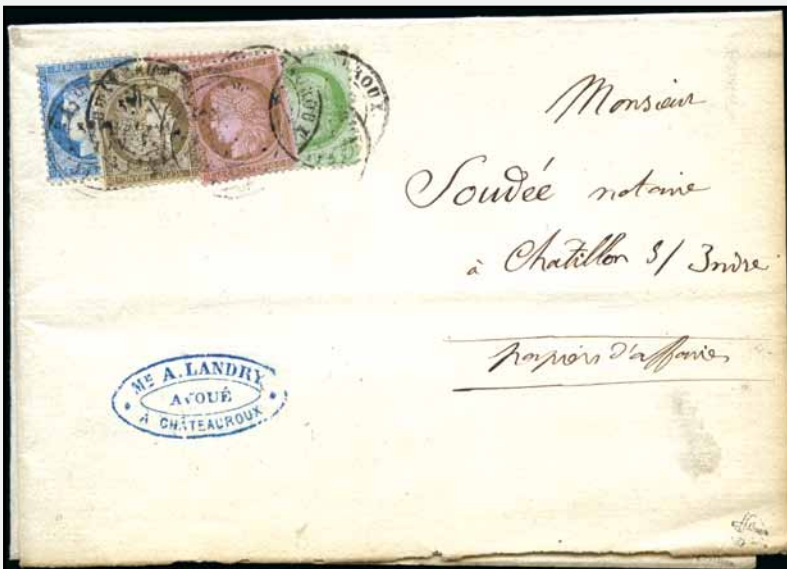 REPUB. FRANC.
EROUX
Monsieur
Soudée notaire
à Chatillon S/ Indre
papiers d'affaires
ME A. LANDRY
AVOUÉ
A CHÂTEAUROUX